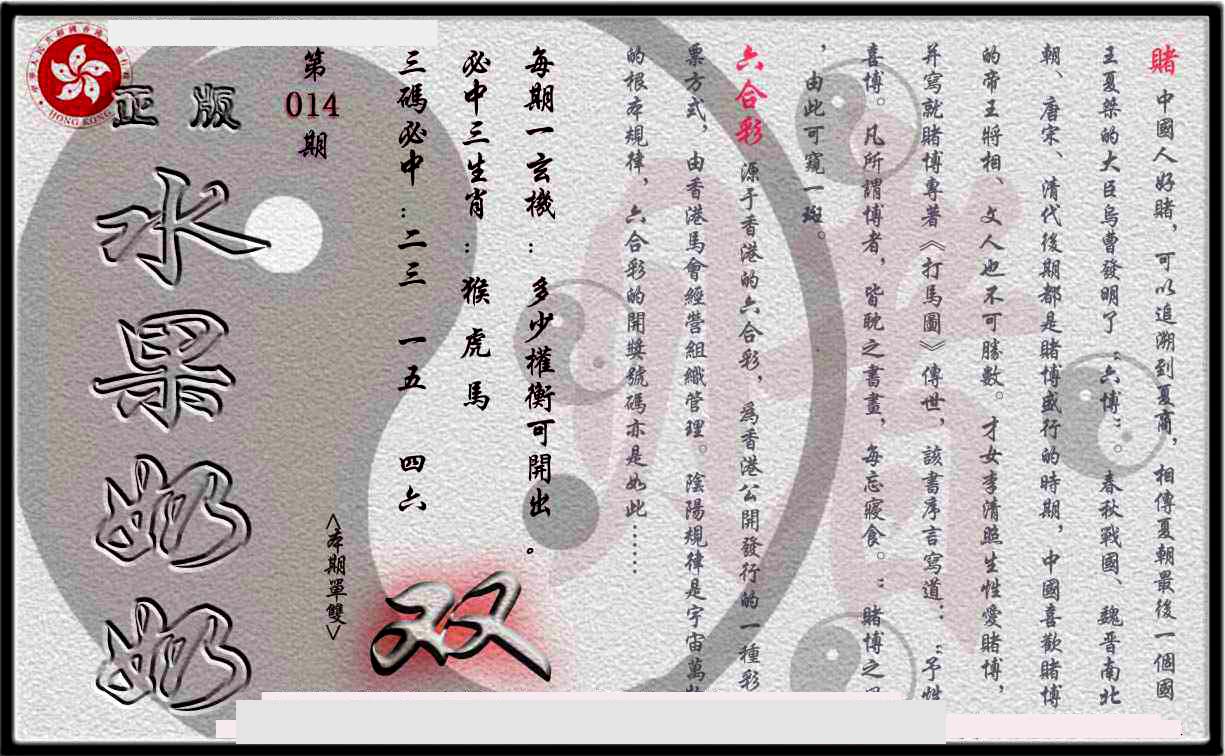 賭 中國人好賭，可以追溯到夏商，相傳夏朝最後一個國
王夏桀的大臣烏曹發明了“六博”。春秋戰國、魏晋南北
朝、唐宋、清代後期都是賭博盛行的時期，中國喜歡賭博
的帝王將相、文人也不可勝數。才女李清照生性愛賭博，
并寫就賭博專著《打馬圖》傳世，該書序言寫道：“予性
喜博。凡所謂博者，皆耽之書畫，每忘寢食。”賭博之
，由此可窺一斑。
六合彩 源于香港的六合彩，為香港公開發行的一種彩
票方式，由香港馬會經營組織管理。陰陽規律是宇宙萬物
的根本規律，六合彩的開獎號碼亦是如此……
每期一玄機：多少權衡可開出。
必中三生肖：猴 虎 馬
三碼必中：二三 一五 四六
<本期單雙>
双
第
014
期
正版
水果奶奶
HONG KONG